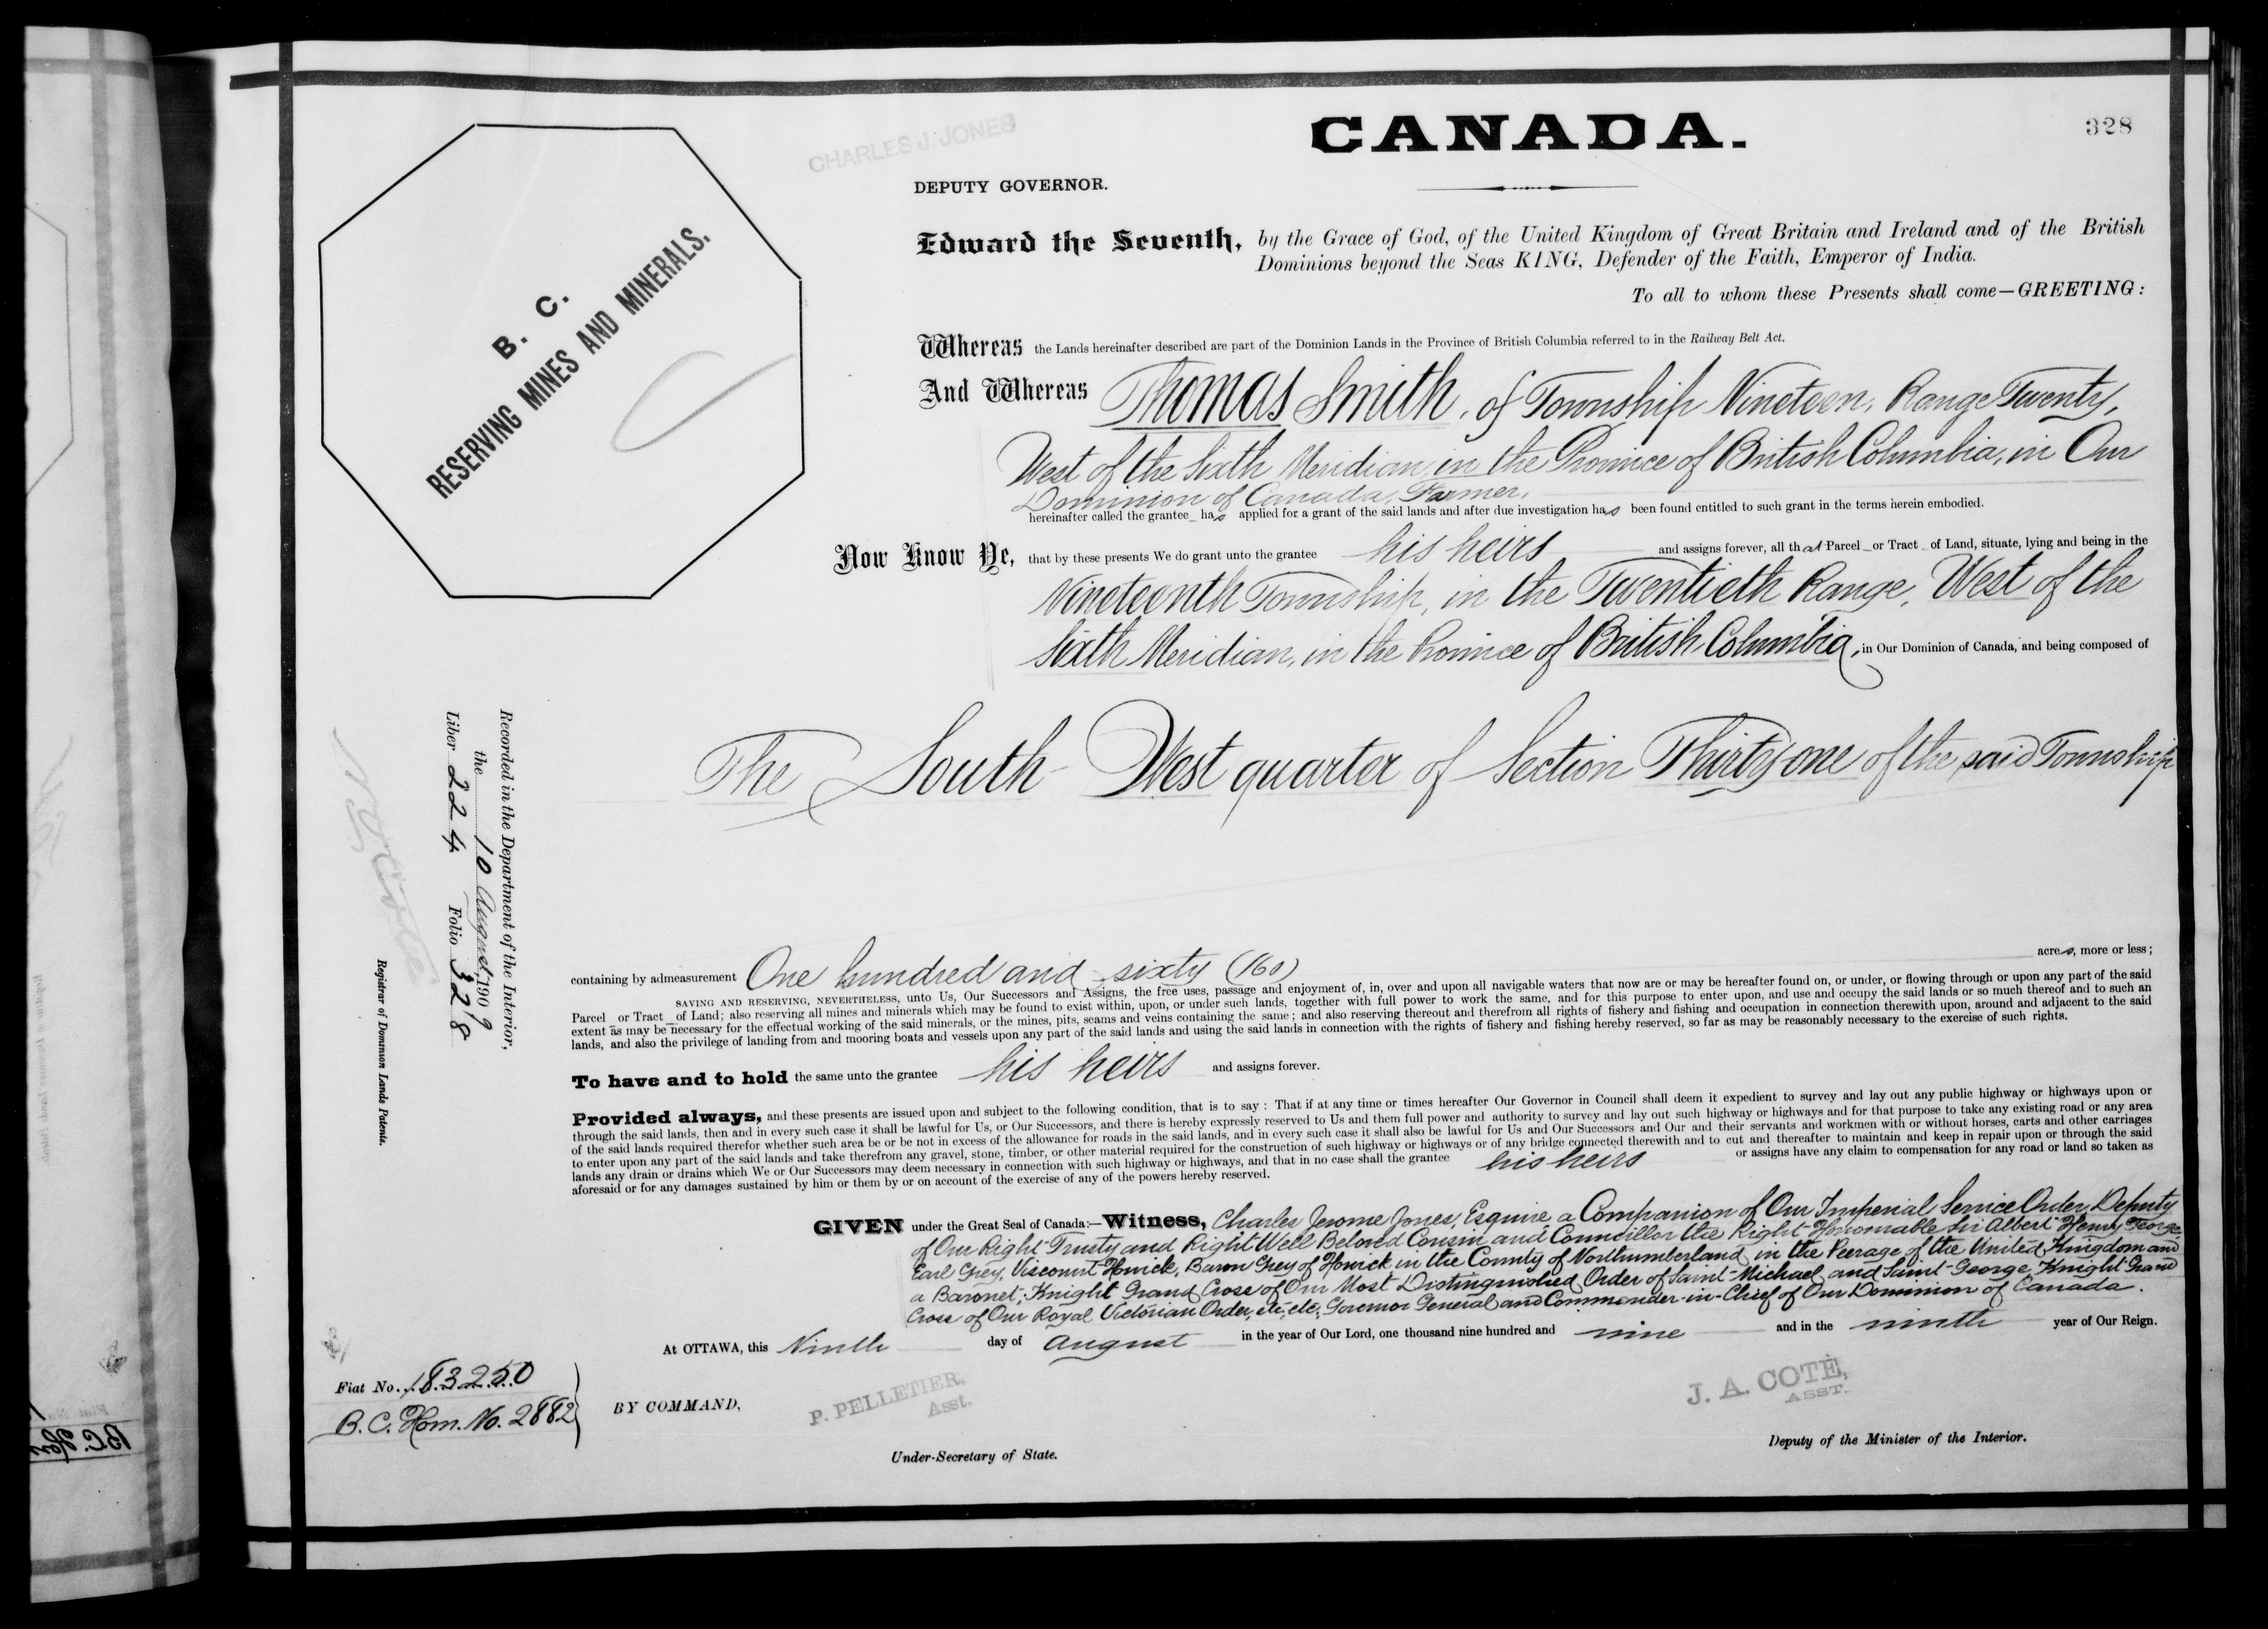 328
CHARLES J. JONES
CANADA.
DEPUTY GOVERNOR.
B. C.
RESERVING MINES AND MINERALS.
Edward the Seventh, by the Grace of God, of the United Kingdom of Great Britain and Ireland and of the British
Dominions beyond the Seas KING, Defender of the Faith, Emperor of India.
To all to whom these Presents shall come—GREETING:
Whereas the Lands hereinafter described are part of the Dominion Lands in the Province of British Columbia referred to in the Railway Belt Act.
And Whereas Thomas Smith, of Township Nineteen, Range Twenty,
West of the Sixth Meridian, in the Province of British Columbia, in Our
Dominion of Canada, Farmer,
hereinafter called the grantee has applied for a grant of the said lands and after due investigation has been found entitled to such grant in the terms herein embodied.
Now Know Ye, that by these presents We do grant unto the grantee his heirs and assigns forever, all that Parcel or Tract of Land, situate, lying and being in the
Nineteenth Township, in the Twentieth Range, West of the
Sixth Meridian, in the Province of British Columbia, in Our Dominion of Canada, and being composed of
The South-West quarter of Section Thirty-one of the said Township
containing by admeasurement One hundred and sixty (160) acres, more or less;
SAVING AND RESERVING, NEVERTHELESS, unto Us, Our Successors and Assigns, the free uses, passage and enjoyment of, in, over and upon all navigable waters that now are or may be hereafter found on, or under, or flowing through or upon any part of the said
Parcel or Tract of Land; also reserving all mines and minerals which may be found to exist within, upon, or under such lands, together with full power to work the same, and for this purpose to enter upon, and use and occupy the said lands or so much thereof and to such an
extent as may be necessary for the effectual working of the said minerals, or the mines, pits, seams and veins containing the same; and also reserving thereout and therefrom all rights of fishery and fishing and occupation in connection therewith upon, around and adjacent to the said
lands, and also the privilege of landing from and mooring boats and vessels upon any part of the said lands and using the said lands in connection with the rights of fishery and fishing hereby reserved, so far as may be reasonably necessary to the exercise of such rights.
To have and to hold the same unto the grantee his heirs and assigns forever.
Provided always, and these presents are issued upon and subject to the following condition, that is to say: That if at any time or times hereafter Our Governor in Council shall deem it expedient to survey and lay out any public highway or highways upon or
through the said lands, then and in every such case it shall be lawful for Us, or Our Successors, and there is hereby expressly reserved to Us and them full power and authority to survey and lay out such highway or highways and for that purpose to take any existing road or any area
of the said lands required therefor whether such area be or be not in excess of the allowance for roads in the said lands, and in every such case it shall also be lawful for Us and Our Successors and Our and their servants and workmen with or without horses, carts and other carriages
to enter upon any part of the said lands and take therefrom any gravel, stone, timber, or other material required for the construction of such highway or highways or of any bridge connected therewith and to cut and thereafter to maintain and keep in repair upon or through the said
lands any drain or drains which We or Our Successors may deem necessary in connection with such highway or highways, and that in no case shall the grantee his heirs or assigns have any claim to compensation for any road or land so taken as
aforesaid or for any damages sustained by him or them by or on account of the exercise of any of the powers hereby reserved.
GIVEN under the Great Seal of Canada:—Witness, Charles Jerome Jones, Esquire, a Companion of Our Imperial Service Order, Deputy
of Our Right Trusty and Right Well Beloved Cousin and Councillor the Right Honourable Sir Albert Henry George,
Earl Grey, Viscount Howick, Baron Grey of Howick in the County of Northumberland, in the Peerage of the United Kingdom and
a Baronet; Knight Grand Cross of Our Most Distinguished Order of Saint-Michael and Saint-George, Knight Grand
Cross of Our Royal Victorian Order, etc., etc., Governor General and Commander-in-Chief of Our Dominion of Canada.
At OTTAWA, this Ninth day of August in the year of Our Lord, one thousand nine hundred and nine and in the ninth year of Our Reign.
Recorded in the Department of the Interior,
the 10 August, 1909
Liber 224 Folio 328
Registrar of Dominion Lands Patents.
Fiat No. 183250
B.C. Hom. No. 2882
BY COMMAND,
P. PELLETIER,
Asst.
Under-Secretary of State.
J. A. COTÉ,
ASST.
Deputy of the Minister of the Interior.